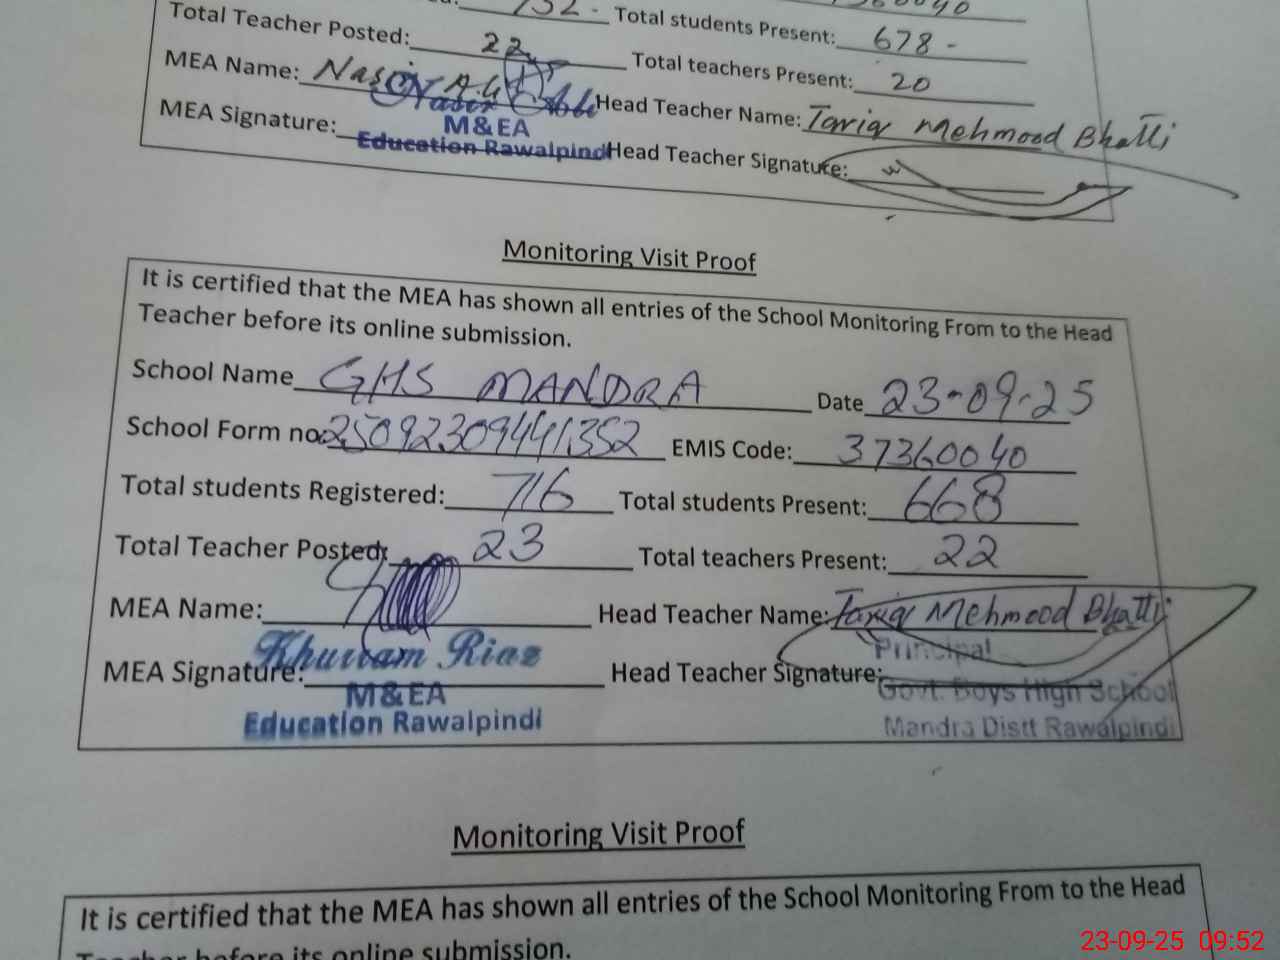 Total students Present: 678 -
Total Teacher Posted: 22 Total teachers Present: 20
MEA Name: Nasir Ali Head Teacher Name: Tariq Mehmood Bhatti
MEA Signature: M&EA
Education Rawalpindi Head Teacher Signature:
Monitoring Visit Proof
It is certified that the MEA has shown all entries of the School Monitoring From to the Head
Teacher before its online submission.
School Name GHS MANDRA Date 23-09-25
School Form no: 25092309441352 EMIS Code: 37360040
Total students Registered: 716 Total students Present: 668
Total Teacher Posted: 23 Total teachers Present: 22
MEA Name: Head Teacher Name: Tariq Mehmood Bhatti
Khurram Riaz Principal
MEA Signature: Head Teacher Signature:
M&EA Govt. Boys High School
Education Rawalpindi Mandra Distt Rawalpindi
Monitoring Visit Proof
It is certified that the MEA has shown all entries of the School Monitoring From to the Head
Teacher before its online submission.
23-09-25 09:52